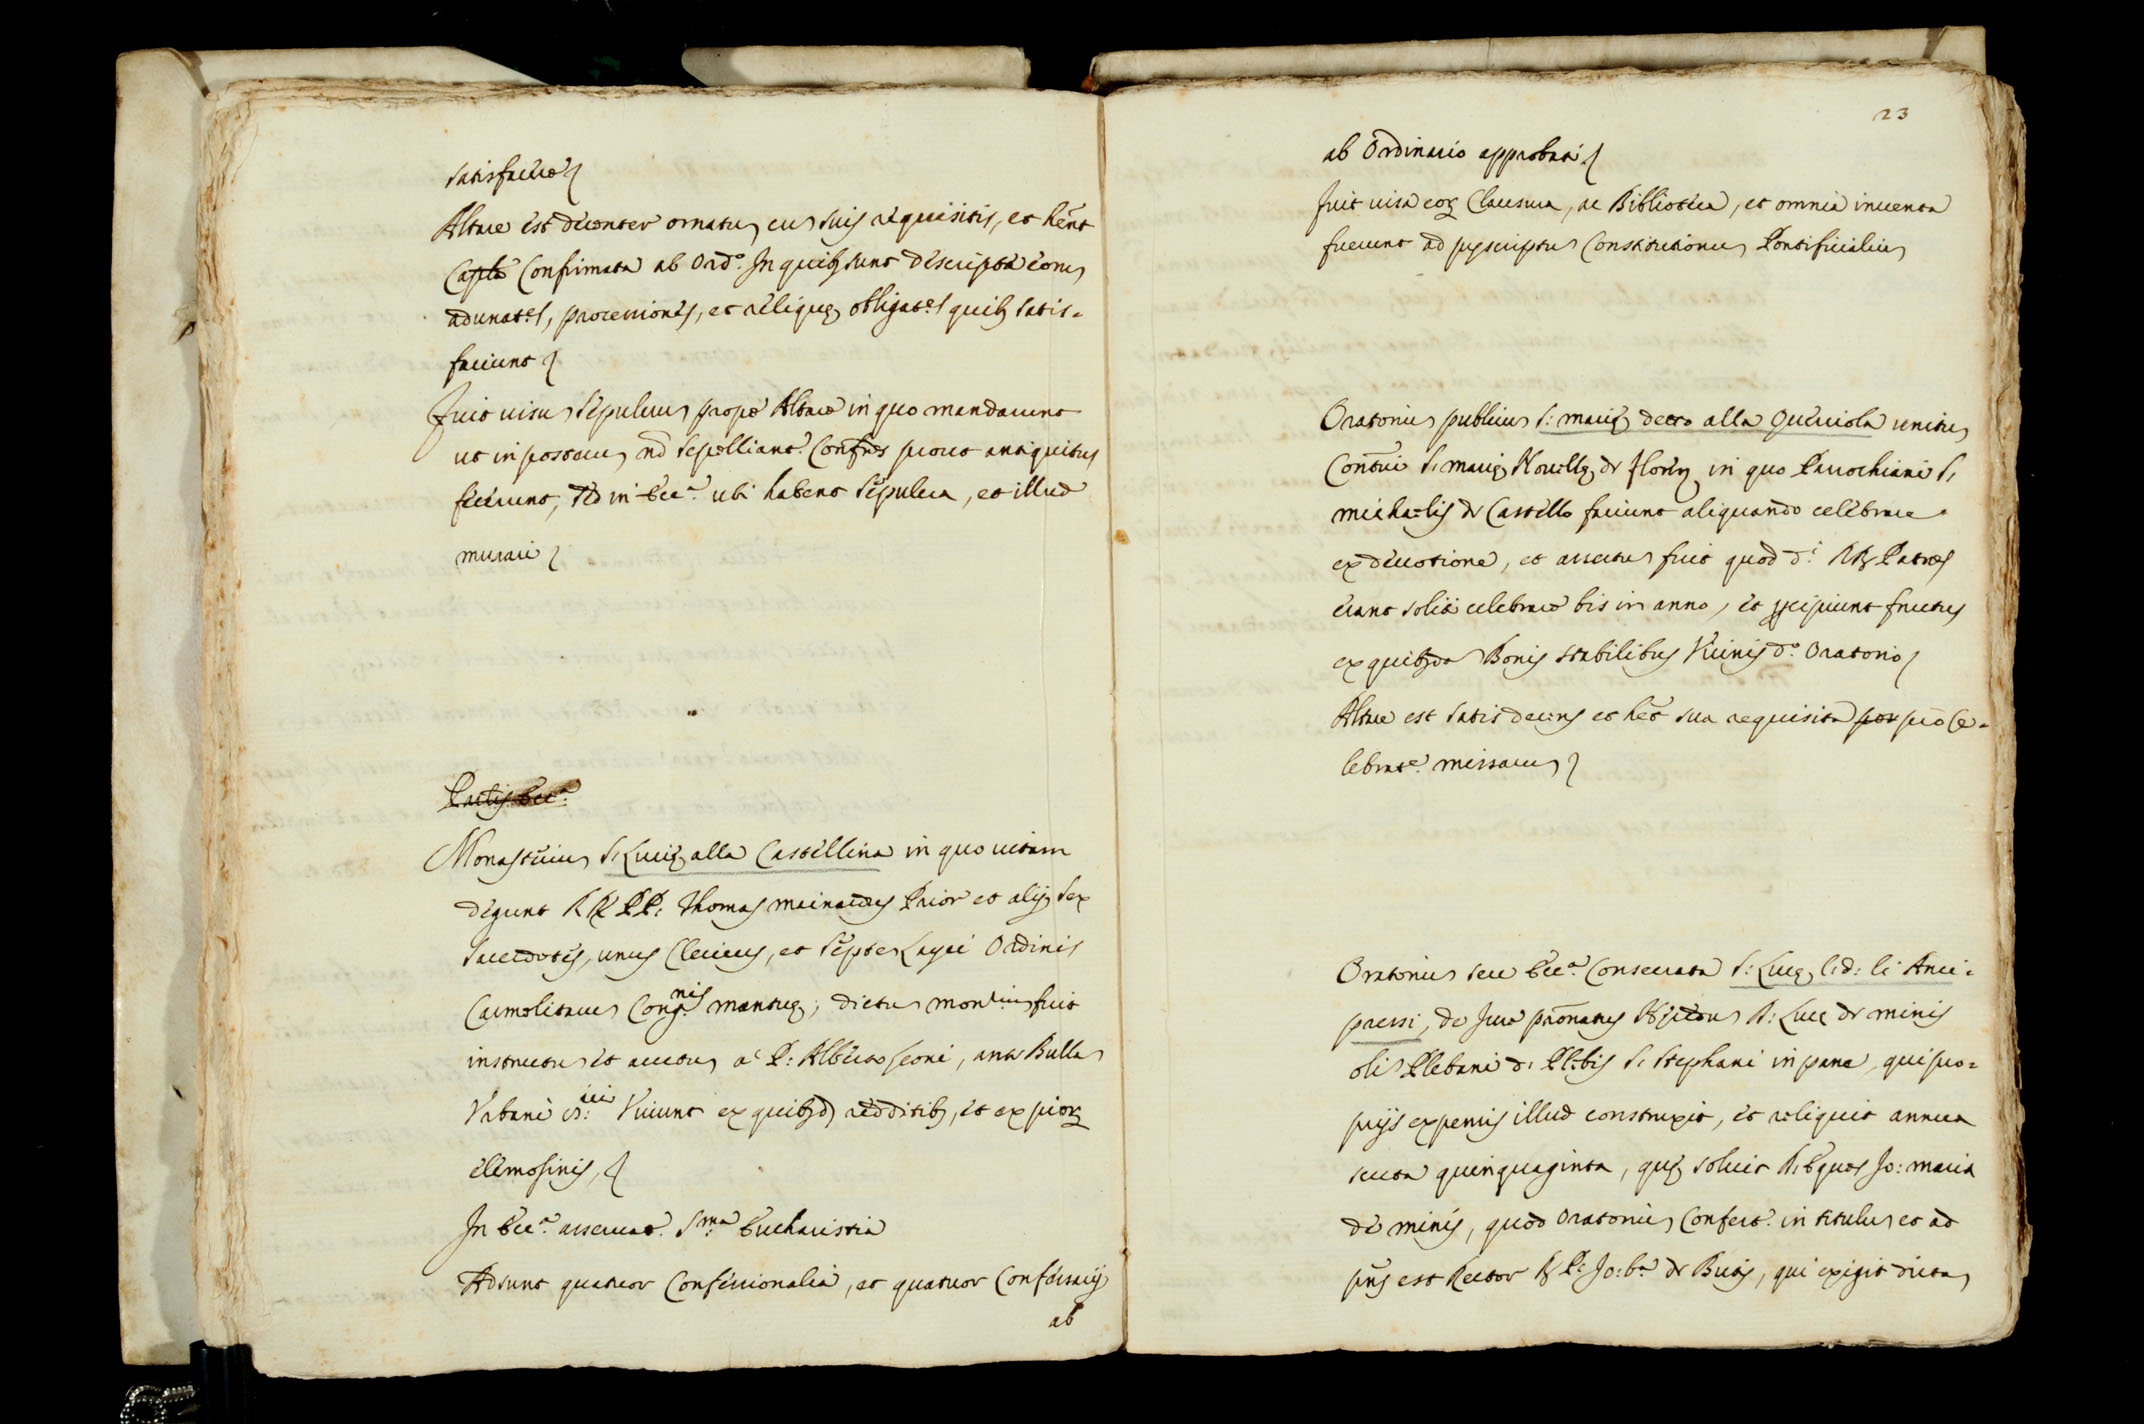 satisfacere
Altare est decenter ornatu, cu suis requisitis, et hẽnt
Caplã Confirmata ab Ord.º In quib; sunt descripta eoru,
adunat.es, processiones, et reliquę obligat.es quib; satis=
faciunt
Fuit visu, Sepulcru, prope Altare in quo mandarunt
ut in posteru, nõ sepelliant.r Confres prout antiquitus
fecerunt, sed in Ecc.a ubi habent Sepulcra, et illud
murari
Partis Ecc.a
Monasteriu, S. Lucię alla Castellina in quo vitam
degunt RR. PP. Thomas Prior et alij sex
Sacerdotes, unus Clericus, et septe, Layci Ordinis
Carmelitaru, Cong.nis mantuę; dictu, mon.riu, fuit
instructu, et auctu, a P. Alberto Leoni, ante Bulla,
Urbani vs.iii Vivunt ex quib;d, redditib;, et ex pior;
elemosinis,
In Ecc.a asservat.r S.ma Eucharistia
Adsunt quatuor Confessionalia, et quatuor Confessarij
ab
23
ab Ordinario approbati
fuit visa eor; Clausura, ac Biblioteca, et omnia inventa
fuerunt ad pręscriptu, Constitutionu, Pontificialiu,
Oratoriu, publicu, S: Marię detto alla Querciola unitu,
Conṽtui S. Marię Novellę de Floreñ, in quo Parochiani S.
Michaelis de Castello faciunt aliquando celebrare
ex devotione, et assertu, fuit quod d.i RR. Patres
erant soliti celebrare bis in anno, et percipiunt fructus
ex quib;da, Bonis stabilibus Vicinis d.º Oratorio
Altare est satis decens et hẽt sua requisita per pro Ce=
lebrat.e missaru,
Oratoriu, seu Ecc.a Conservata S: Lucę l:d: li Arci=
pressi, de Jure prõnatus Hęredu, R: Lucę de Minis
oli, Plebani d. Plebis S. Stephani in pane, qui pro=
prijs expensis illud construxit, et reliquit annua
scuta quinquaginta, quę solvit R. Eques Jo: Maria
de Minis, quod Oratoriu, Confert.r in titulu, et ad
pñs est Rector R. P. Jo: B.a de , qui exigit dicta,